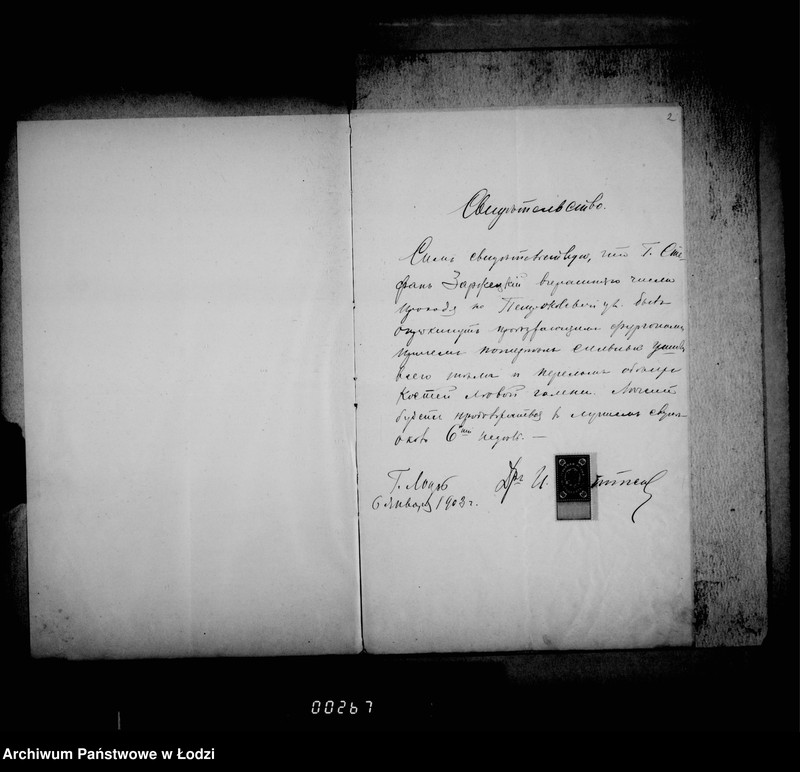 2
Свидѣтельство.
Симъ свидѣтельствую, что Г. Сте-
фанъ Заржецкій вчерашняго числа
проходя по Петроковской ул. былъ
опрокинутъ проѣзжающимъ фургономъ,
причемъ сильный ушибъ
всего тѣла и переломъ обѣихъ
костей лѣвой голени. Лѣченіе
будетъ въ лучшемъ случаѣ
около 6ти недѣль. —
Г. Лодзь
6 Января 1903 г.
Дръ И.
00267
Archiwum Państwowe w Łodzi